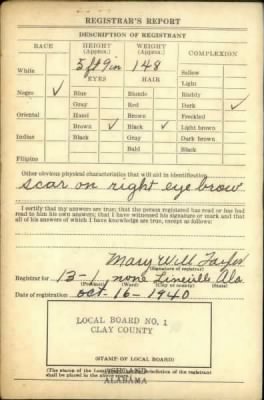 REGISTRAR'S REPORT
DESCRIPTION OF REGISTRANT
RACE HEIGHT (Approx.) WEIGHT (Approx.) COMPLEXION
5 ft 9 in 148
White EYES HAIR Sallow
Light
Negro ✓ Blue Blonde Ruddy
Gray Red Dark ✓
Oriental Hazel Brown Freckled
Brown ✓ Black ✓ Light brown
Indian Black Gray Dark brown
Bald Black
Filipino
Other obvious physical characteristics that will aid in identification
scar on right eye brow
I certify that my answers are true; that the person registered has read or has had
read to him his own answers; that I have witnessed his signature or mark and that
all of his answers of which I have knowledge are true, except as follows:
Mary Will Taylor
(Signature of registrar)
Registrar for 13-1 none Lineville Ala
(Precinct) (Ward) (City or county) (State)
Date of registration Oct-16-1940
LOCAL BOARD NO. 1
CLAY COUNTY
(STAMP OF LOCAL BOARD)
(The stamp of the Local Board having jurisdiction of the registrant
shall be placed in the above space.)
ASHLAND
ALABAMA